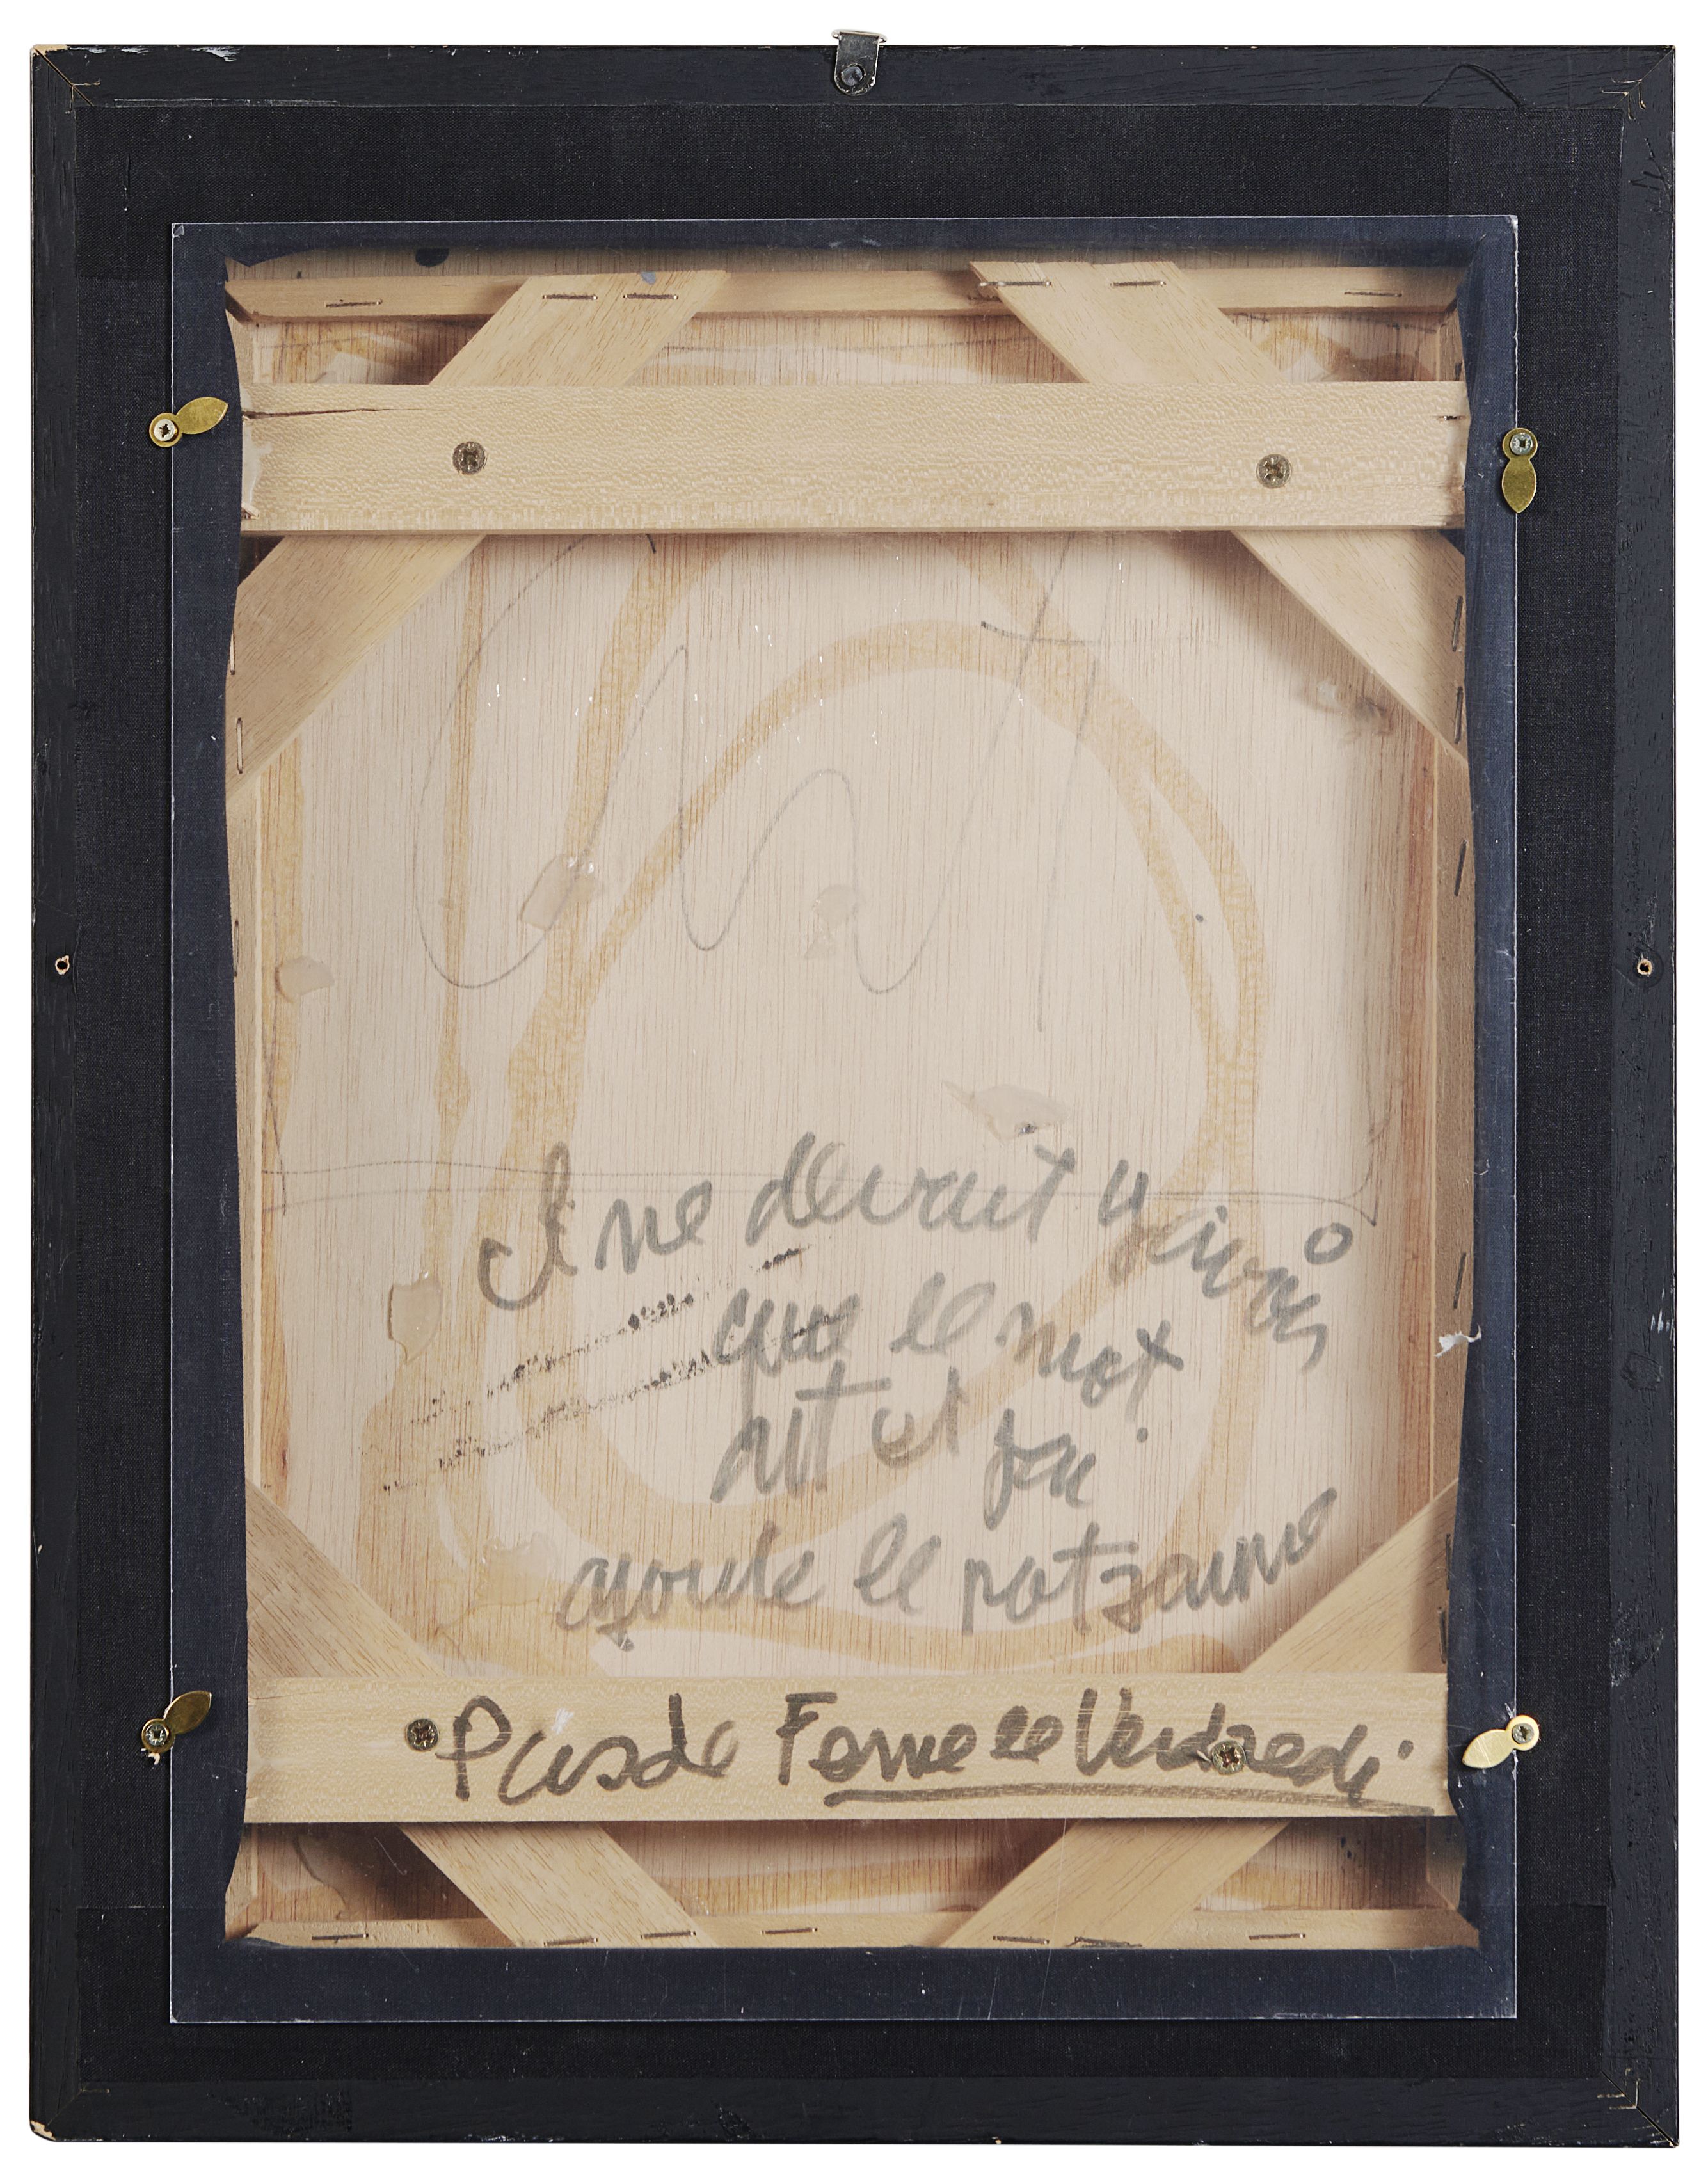 Il ne devrait y avoir
que le mot
art et
ajoute le pot jaune
Pas de Femme le Vendredi.